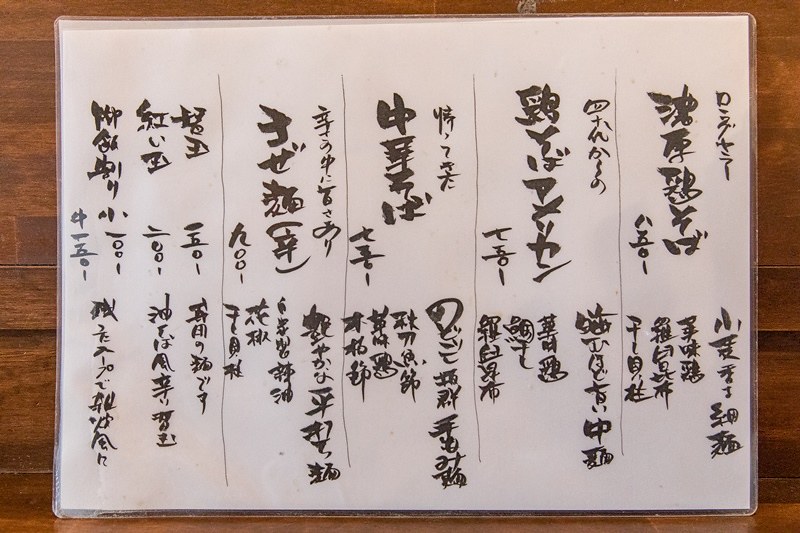 ロングセラー
濃厚鶏そば
八五〇-
小麦香る細麺
美味鶏
羅臼昆布
干し貝柱
四十代からの
鶏そばアメリカン
七五〇-
噛むほど旨い中麺
美味鶏
鯛干し
羅臼昆布
帰ってきた
中華そば
七五〇-
のどごし抜群手もみ麺
秋刀魚節
美味鶏
本枯節
辛さの中に旨さあり
まぜ麺(辛)
九〇〇-
艶やかな平打ち麺
自家製辣油
花椒
干し貝柱
替玉
一五〇-
専用の麺です
紅い玉
二〇〇-
油そば風辛い替玉
御飯割り
小一〇〇-
中一五〇-
残ったスープで雑炊風に